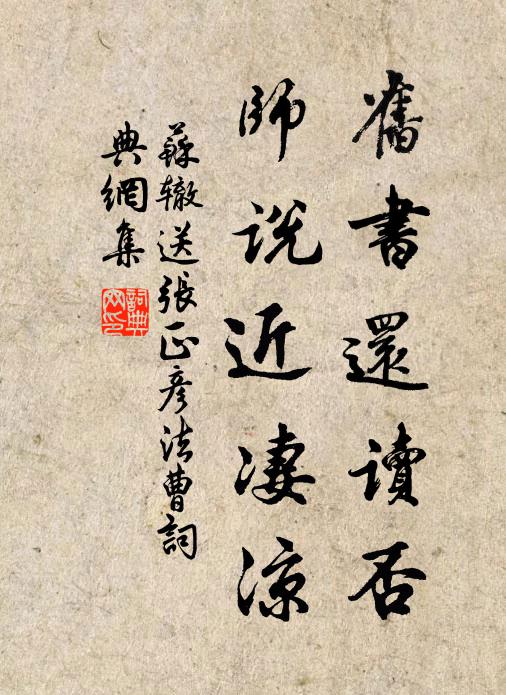 舊書還讀否
師說近淒涼
蘇轍送張正彥法曹詞
典網集
詞典網印